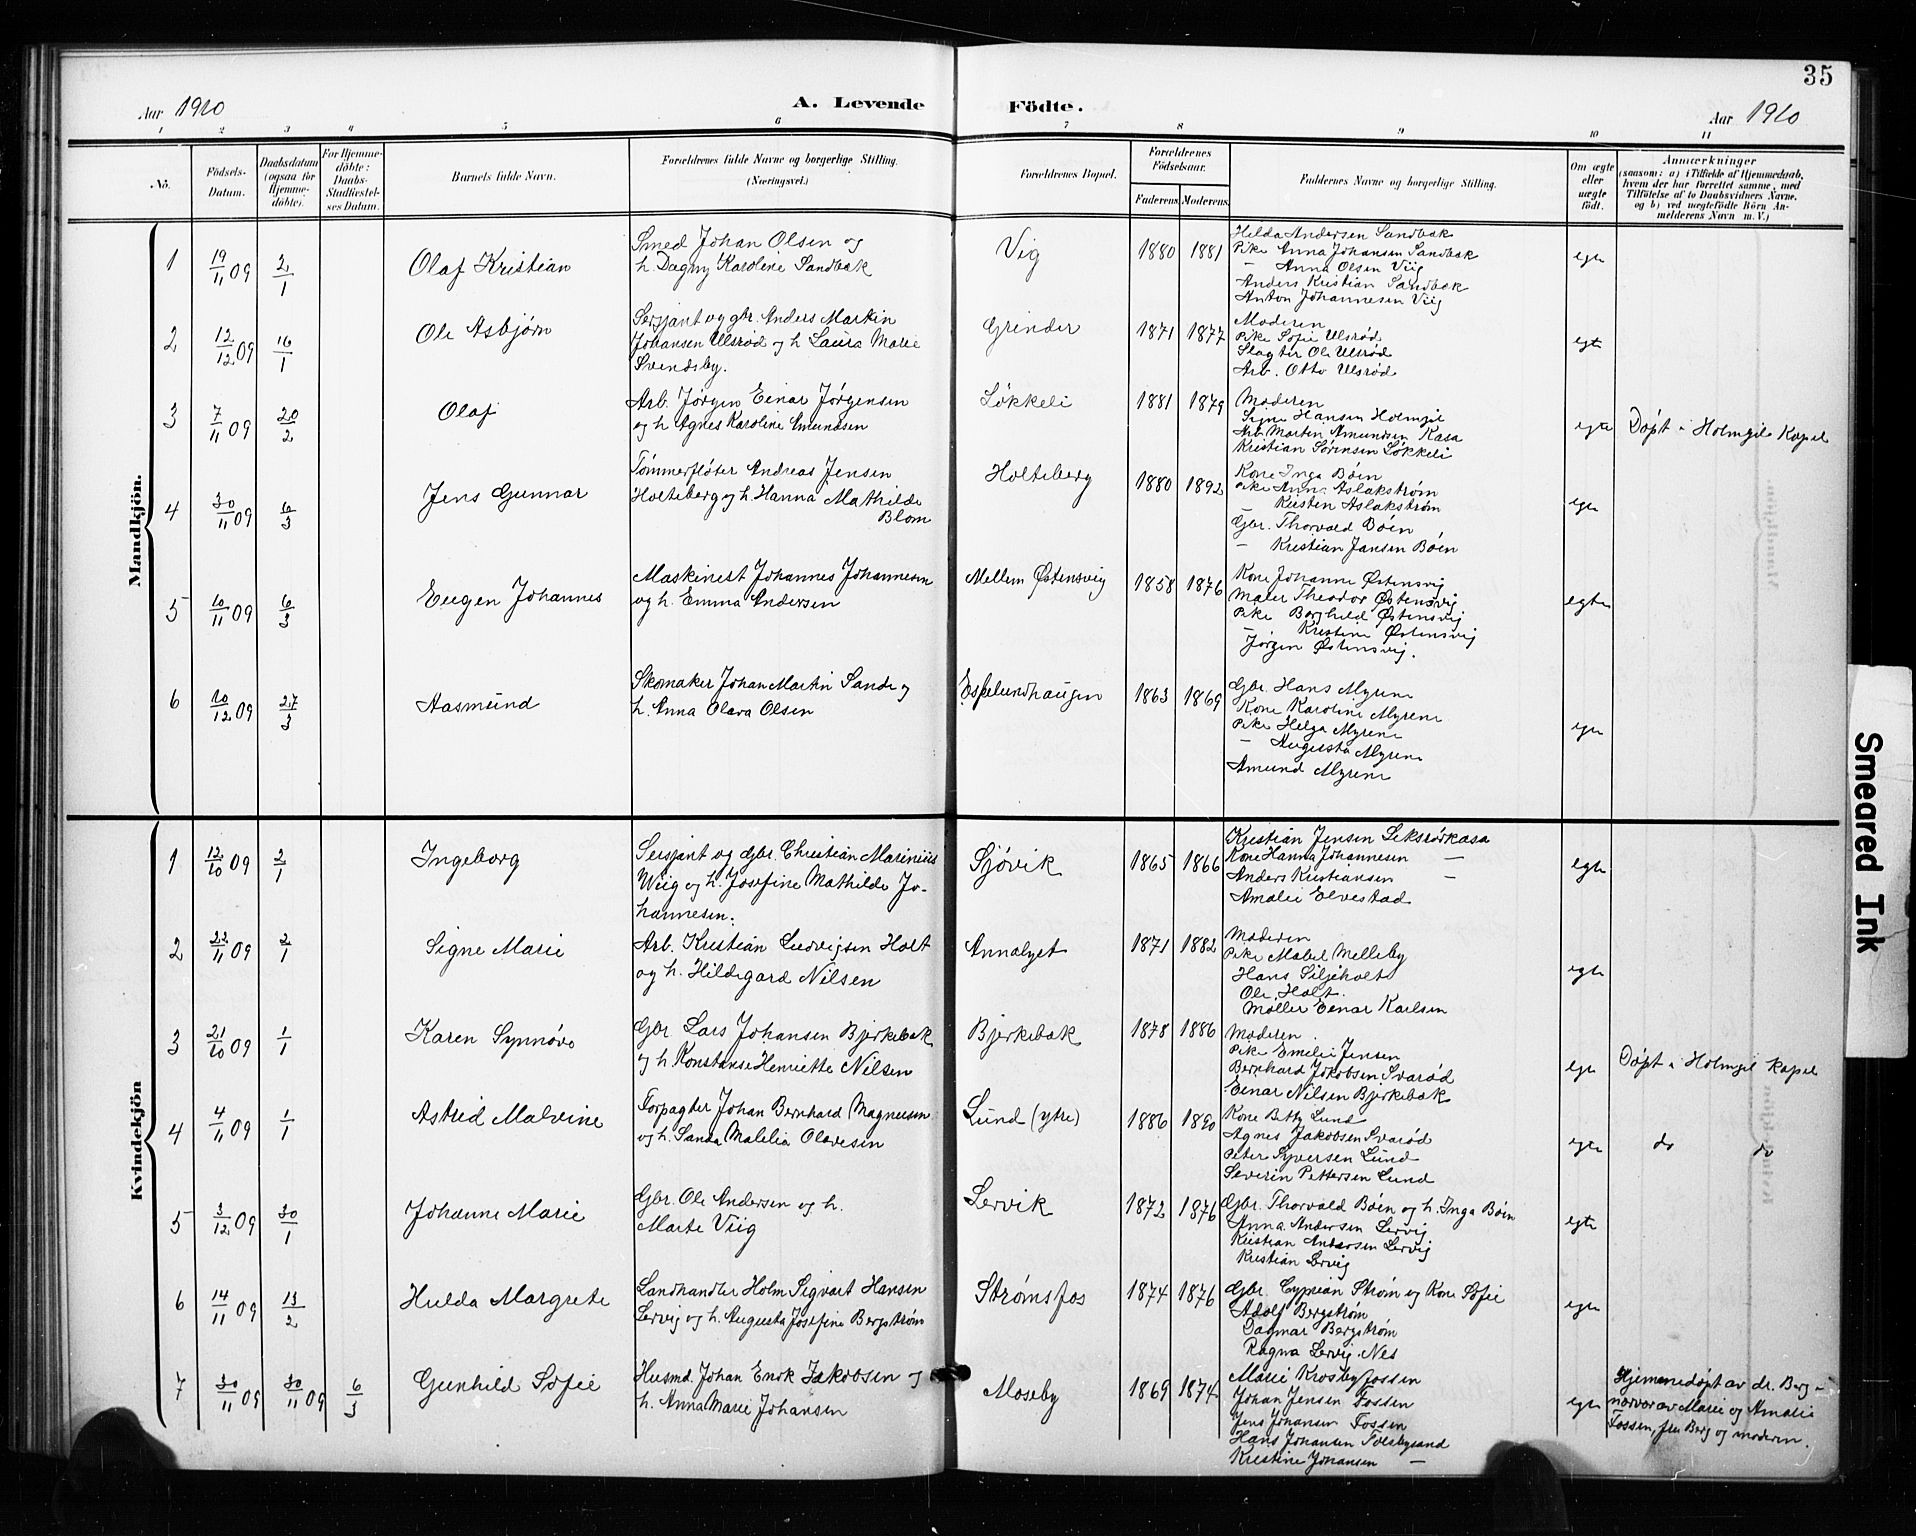 35
Aar 1910 A. Levende Födte. Aar 1910
1 2 3 4 5 6 7 8 9 10 11
No. Födsels-Datum. Daabsdatum (ogsaa for Hjemmedöbte). For Hjemmedöbte: Daabs-Stadfæstelses Datum. Barnets fulde Navn. Forældrenes fulde Navne og borgerlige Stilling. (Næringsvei.) Forældrenes Bopæl. Forældrenes Födselsaar. Faderens. Moderens. Faddernes Navne og borgerlige Stilling. Om ægte eller uægte födt. Anmærkninger (saasom: a) i Tilfælde af Hjemmedaab, hvem der har forrettet samme, med Tilföielse af to Daabsvidners Navne, og b) ved uægtefödte Börn Anmelderens Navn m. V.)
Mandkjön.
1 19/11 09 2/1 Olaf Kristian
Smed Johan Olsen og
h. Dagny Karoline Sandbæk
Vig 1880 1881
Hilda Andersen Sandbæk
Pike Anna Johansen Sandbæk
— Anna Olsen Viig
Anders Kristian Sandbæk
Anton Johannesen Viig
egte
2 12/12 09 16/1 Ole Asbjørn
Sersjant og gbr. Anders Martin
Johansen Ulsrød og h Laura Marie
Svendsby.
Grinder 1871 1877
Moderen
Pike Sofie Ulsrød
Slagter Ole Ulsrød
Arb. Otto Ulsrød
egte
3 7/11 09 20/2 Olaf
Arb. Jørgen Einar Jørgensen
og h Agnes Karoline Amundsen
Løkkeli 1881 1879
Moderen
Signe Hansen Holmgil
Arb. Martin Amundsen Kasa
Kristian Sørensen Løkkeli
egte Døpt i Holmgils Kapel
4 30/11 09 6/3 Jens Gunnar
Tømmerfløter Andreas Jensen
Holteberg og h. Hanna Mathilde
Blom
Holteberg 1880 1892
Kone Inga Bøen
Pike Anna Aslakstrøm
Kristen Aslakstrøm
Gbr. Thorvald Bøen
— Kristian Jansen Bøen
egte
5 10/11 09 6/3 Eugen Johannes
Maskinest Johannes Johannesen
og h. Emma Andersen
Mellem Østensvig 1858 1876
Kone Johanne Østensvig
Maler Theodor Østensvig
Pike Borghild Østensvig
— Kristine Østensvig
Jørgen Østensvig.
egte
6 10/12 09 27/3 Aasmund
Skomaker Johan Martin Sande og
h. Anna Olava Olsen
Espelundhaugen 1863 1869
Gbr. Hans Myrene
Kone Karoline Myrene
Pike Helga Myrene
— Augusta Myrene
Amund Myrene
egte
Kvindekjön
1 12/10 09 2/1 Ingeborg
Sersjant og Gbr. Christian Marinius
Wiig og h. Josefine Mathilde Jo-
hannesen.
Sjøvik 1865 1866
Kristian Jensen
Kone Hanna Johannesen —
Anders Kristiansen —
Amalie Elvestad
egte
2 22/11 09 2/1 Signe Marie
Arb. Kristian Ludvigsen Holt
og h. Hildegard Nilsen
Annalyet 1871 1882
Moderen
Pike Mabel Melleby
Hans Siljeholt
Ole Holt.
Møller Einar Karlsen
egte
3 21/10 09 1/1 Karen Synnøve
Gbr Lars Johansen Bjerkebæk
og h Konstanse Henriette Nilsen
Bjerkebæk 1878 1886
Moderen
Pike Emelie Jensen
Bernhard Jakobsen Svarød
Einar Nilsen Bjerkebæk
egte Døpt i Holmgil Kapel
4 4/11 09 1/1 Astrid Malvine
Forpagter Johan Bernhard Magnusen
og h. Sanda Malelia Olavesen
Lund (ytre) 1886 1890
Kone Betty Lund
Agnes Jakobsen Svarød
Peter Syversen Lund
Severin Pettersen Lund
egte do do
5 3/12 09 30/1 Johanne Marie
Gbr. Ole Andersen og h.
Marte Viig
Lervik 1872 1876
Gbr. Thorvald Bøen og h. Inga Bøen
Anna Andersen Lervig
Kristian Andersen Lervig
Kristian Lervig
egte
6 14/11 09 13/2 Hulda Margrete
Landhandler Holm Sigvart Hansen
Lervig og h. Augusta Josefine Bergstrøm
Strømsfos 1874 1876
Gbr. Cyprian Strøm og Kone Sofie
Adolf Bergstrøm
Dagmar Bergstrøm
Ragna Lervig Nes
egte
7 30/11 09 30/11 09 6/3 Gunhild Sofie
Husmd. Johan Enok Jakobsen og
h. Anna Marie Johansen
Moseby 1869 1874
Marie Krosby Fossen
Johan Jensen Fossen
Jens Johansen Fossen
Hans Johansen Folsbysand
Kristine Johansen —
egte
Hjemmedøpt av dr. Berg
nærvær av Marie og Amalie
Fossen, fru Berg og moderen.
Smeared Ink